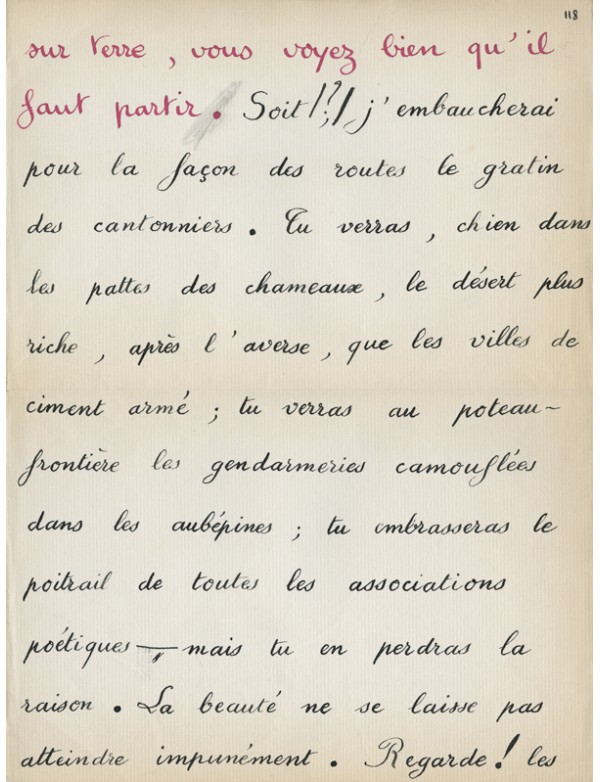 118
sur terre, vous voyez bien qu'il
faut partir. Soit !?! j'embaucherai
pour la façon des routes le gratin
des cantonniers. Tu verras, chien dans
les pattes des chameaux, le désert plus
riche, après l'averse, que les villes de
ciment armé ; tu verras au poteau-
frontière les gendarmeries camouflées
dans les aubépines ; tu embrasseras le
poitrail de toutes les associations
poétiques — mais tu en perdras la
raison. La beauté ne se laisse pas
atteindre impunément. Regarde ! les